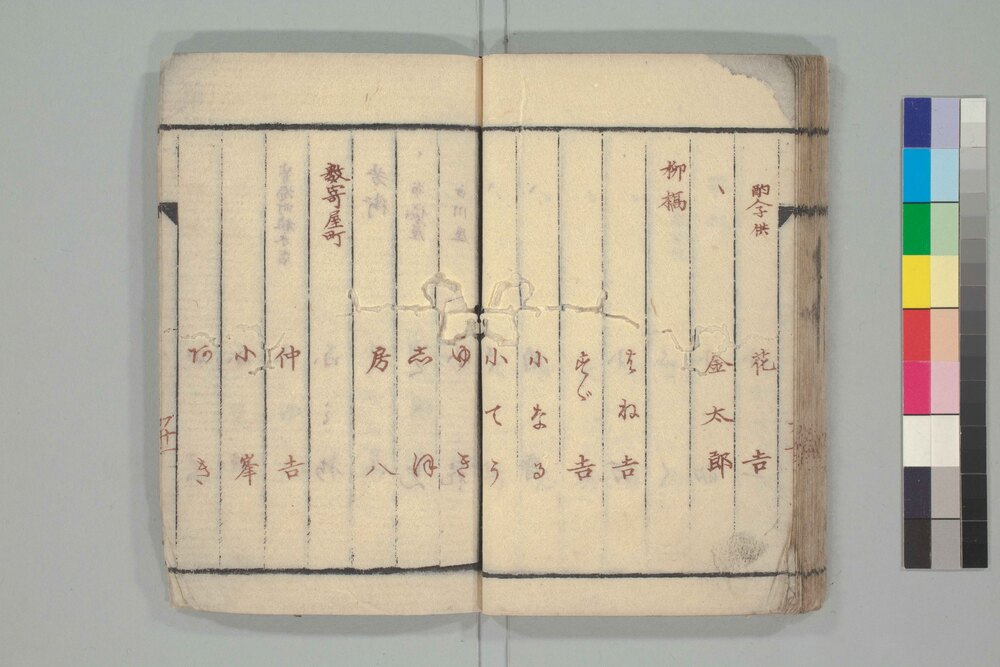 酌人子供
花吉
金太郎
柳橋
はね吉
小なる
小てう
ゆき
志ほ
房八
数寄屋町
仲吉
小峯